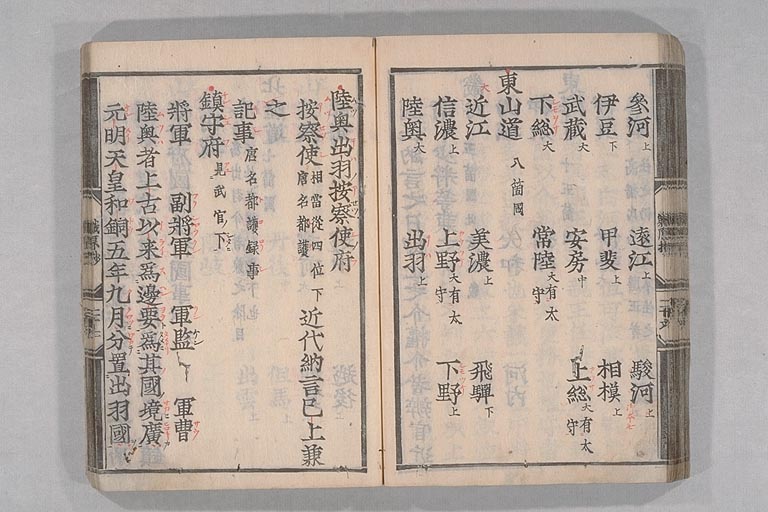 參河上 遠江上 駿河上
伊豆下 甲斐上 相模上
武藏大 安房中 上総大有太守
下総大 常陸大有太守
東山道 八箇國
近江大 美濃上 飛騨下
信濃上 上野大有太守 下野上
陸奥大 出羽上
陸奥出羽按察使府
按察使相當從四位下唐名都護 近代納言已上兼
之
記事唐名都護録事
鎮守府見武官下
將軍 副將軍 軍監 軍曹
陸奥者上古以來爲邊要爲其國境廣
元明天皇和銅五年九月分置出羽國